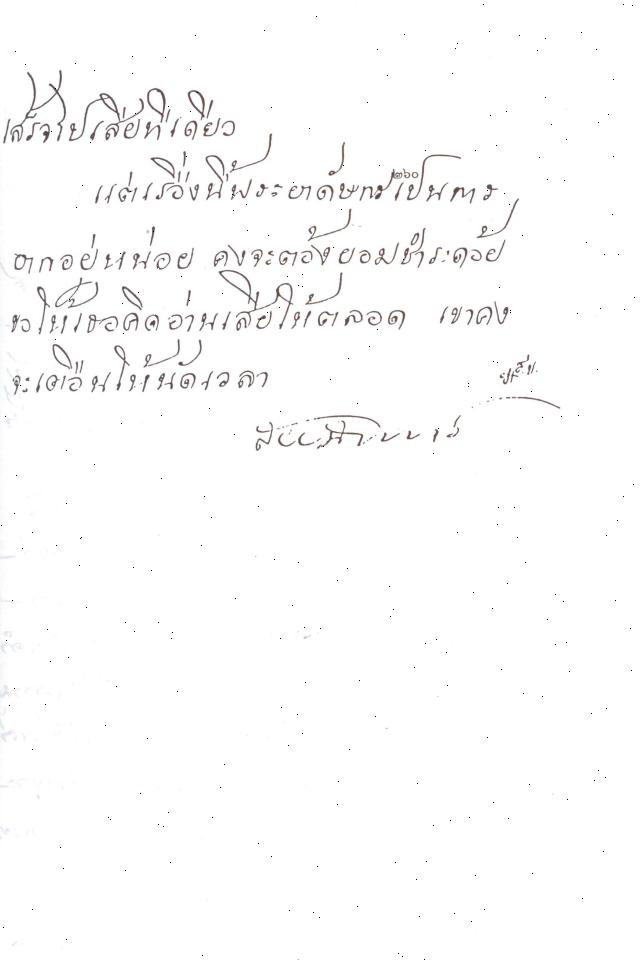 เสร็จไปเสียทีเดียว
แต่เรื่องนี้พระยา เป็นการ
๒๖๐
อยู่หน่อย คงจะต้องยอมชำระด้วย
ขอให้เธอคิดอ่านเสียให้ตลอด เขาคง
จะเตือนให้นัดเวลา